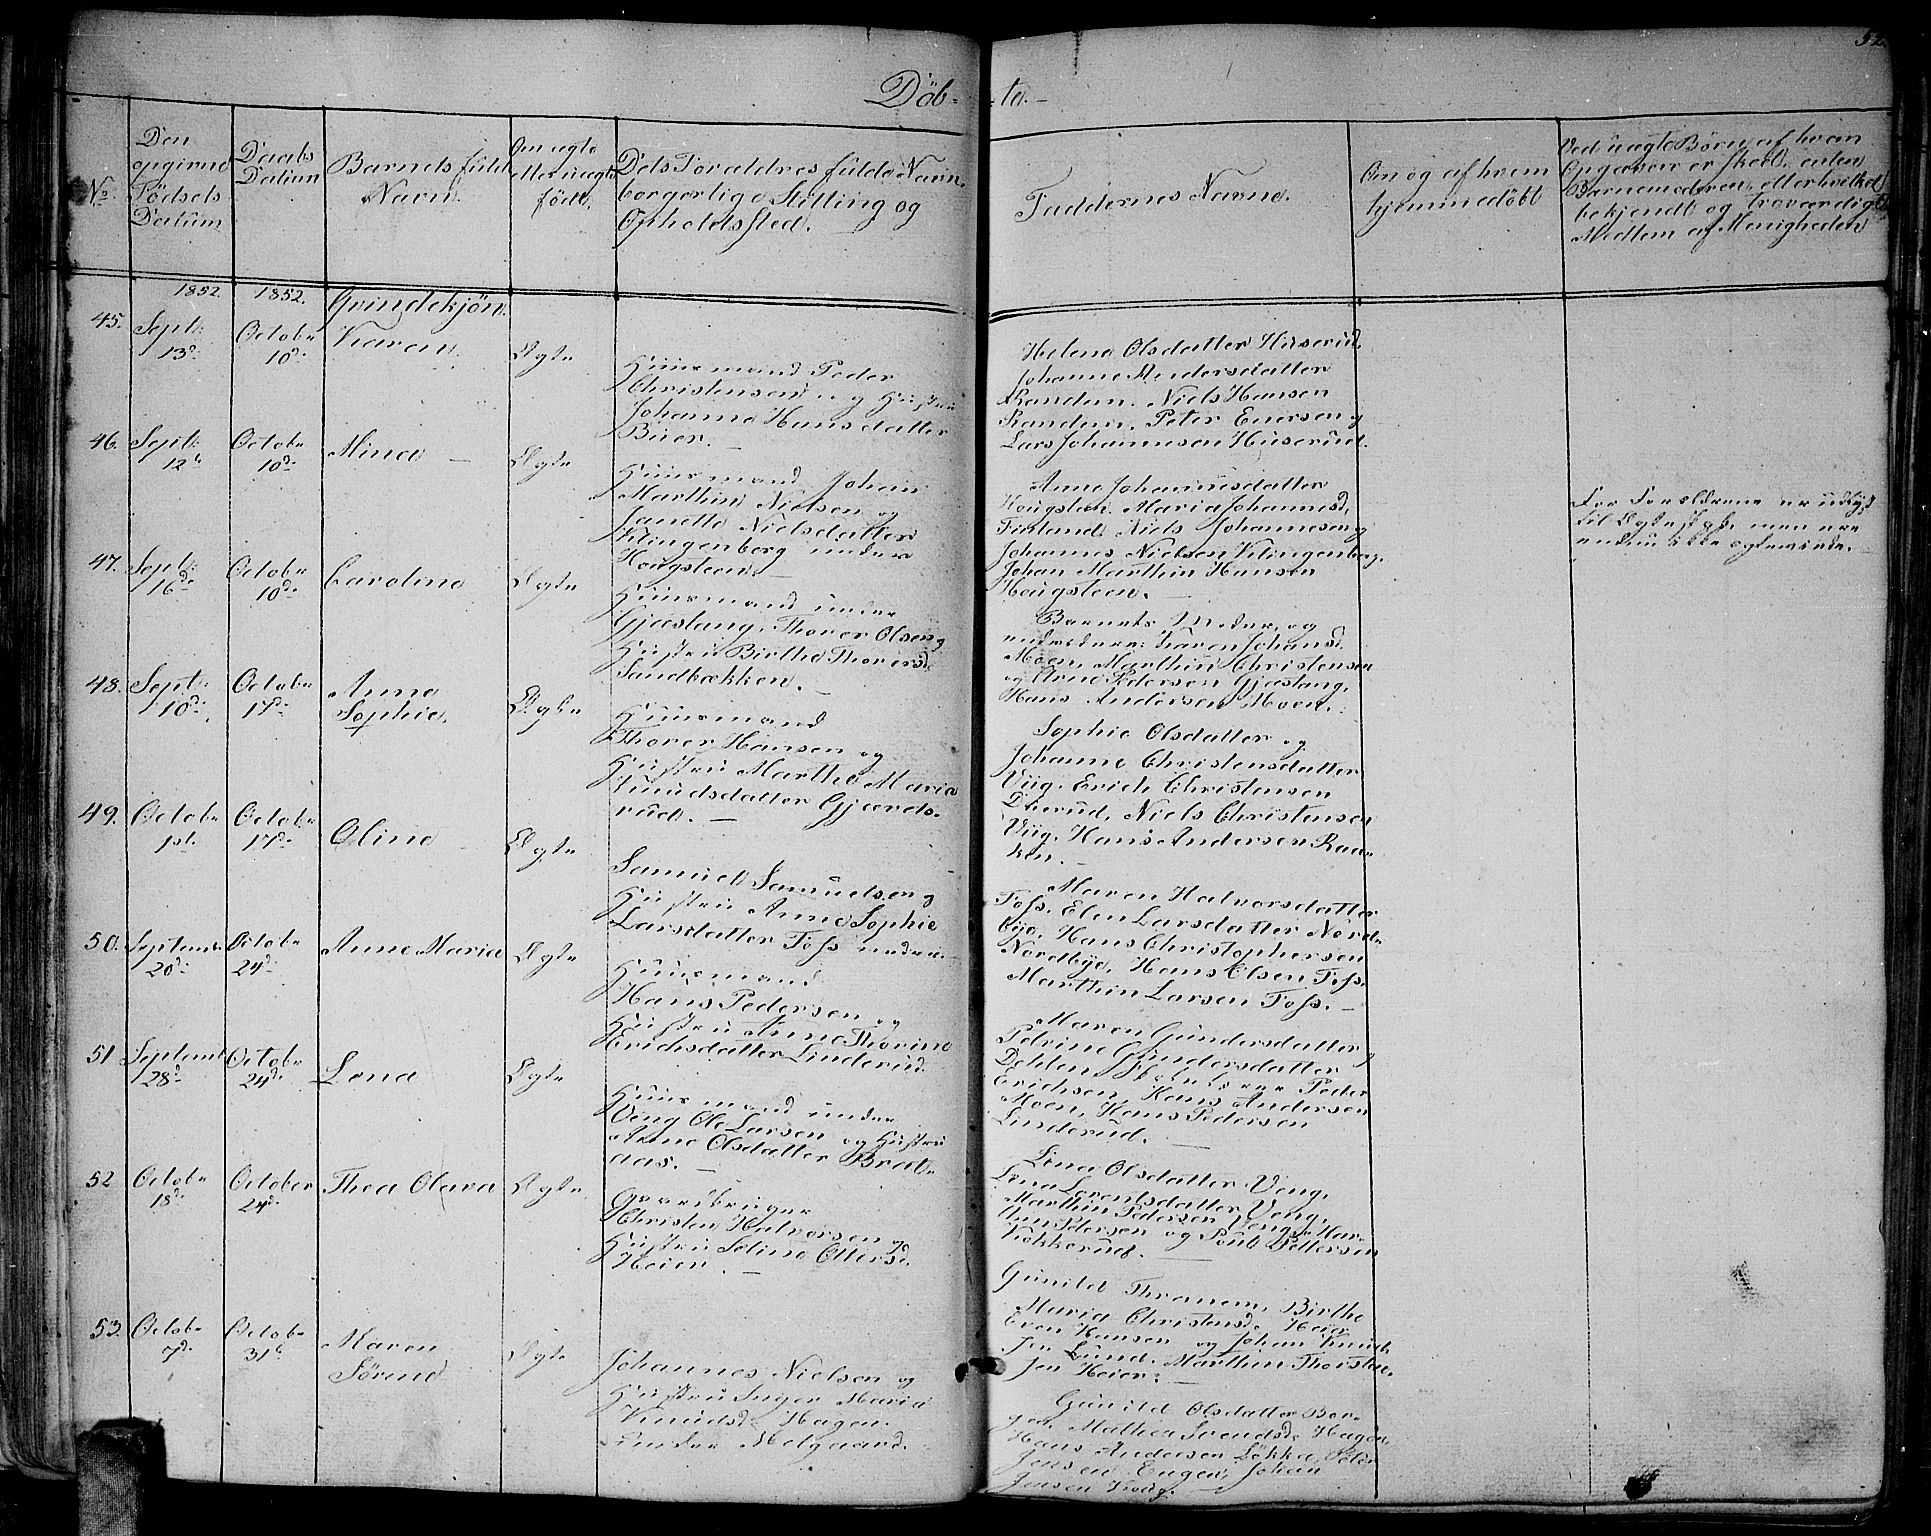 52.
Döb- te.-
No.
Den
opgivne
Födsels
Datum
Daabs
Datum
Barnets fulde
Navn
Om ægte
eller uægte
født.
Dets Forældres fulde Navn
borgerlige Stilling og
Opholdssted.
Faddernes Navne.
Om og af hvem
hjemmedöbt
Ved uægte Børn af hvem
Opgaven er skeet, enten
Barnemoderen, eller hvilket
bekjendt og troværdigt
Medlem af Menigheden
1852. 1852. Qvindekjön.
45. Sept:
13de
Octobr
10de
Karen.
Ægte
Huusmand Peder
Christensen og Hustru
Johanne Hansdatter
Buer.
Helene Olsdatter Huserud,
Johanne Andersdatter
Randem. Niels Hansen
Randem. Peter Enersen og
Lars Johannesen Huserud.
46. Sept:
12te
Octobr
10de
Mina
Ægte
Huusmand Johan
Marthin Nielsen og
Janette Nielsdatter
Klingenberg under
Hougsteen.
Anne Johannesdatter
Hougsteen. Maria Johannesd.
Finland. Niels Johannesen og
Johannes Nielsen Klingenberg,
Johan Marthin Hansen
Hougsteen.
For Forældrene er udlyst
til Ægteskab, men ere
endnu ikke ægteviede.
47. Sept:
16de
Octobr
10de
Caroline
Ægte
Huusmand under
Gjøslang, Thorer Olsen og
Hustru Birthe Thorersd.
Sandbækken.
Barnets Moder, og
Karen Johansd.
Moen, Marthin Christensen
og Arne Pedersen Gjøslang,
Hans Andersen Moen.
48. Sept:
10de
Octobr
17de
Anne
Sophie.
Ægte
Huusmand
Thorer Hansen og
Hustru Marthe Maria
Knudsdatter Gjærds-
rud.
Sophie Olsdatter og
Johanne Christensdatter
Viig. Erich Christensen
Niels Christensen
Viig, Hans Andersen Raa-
ken.
49. Octobr
1st.
Octobr
17de
Oline
Ægte
Samuel Samuelsen og
Hustru Anne Sophie
Larsdatter Foss
Maren Halvorsdatter
Foss. Elen Larsdatter Nord-
bye, Hans Christophersen
Nordbye, Hans Olsen Foss.
Marthin Larsen Foss.
50. Septembr
20de
Octobr
24de
Anne Maria
Ægte
Huusmand
Hans Pedersen og
Hustru Anne Thorine
Erichsdatter Linderud.
Maren Gundersdatter,
Petrine Gundersdatter
Peder
Erichsen, Hans Andersen
Moen, Hans Pedersen
Linderud.
51 Septembr
28de
Octobr
24de
Lena
Ægte
Huusmand under
Veng Ole Larsen og Hustru
Anne Olsdatter Brat-
aas.
Lina Olsdatter Veng,
Lena Lorentsdatter Veng,
Marthin Pedersen Veng, Hal-
Pedersen og Poul Pettersen
Kokkerud.
52 Octobr
18de
October
24de
Thea Olava
Ægte
Gaardbruger
Christen Halvorsen og
Hustru Seline Ottersd.
Heier.
Gunild Thranem, Birthe
Maria Christensd. Heier
Even Hansen og Johan Knud-
sen Lund. Marthin Thorsten-
sen Heier.
53. Octobr
7de
Octobr
31te
Maren
Sørine
Ægte
Johannes Nielsen og
Hustru Inger Maria
Knudsd. Hagen
under Melgaard.
Gunild Olsdatter Ber-
gen, Mathea Svendsd. Hagen,
Hans Andersen Løkka, Peter
Jensen Eugen, Johan
Jensen